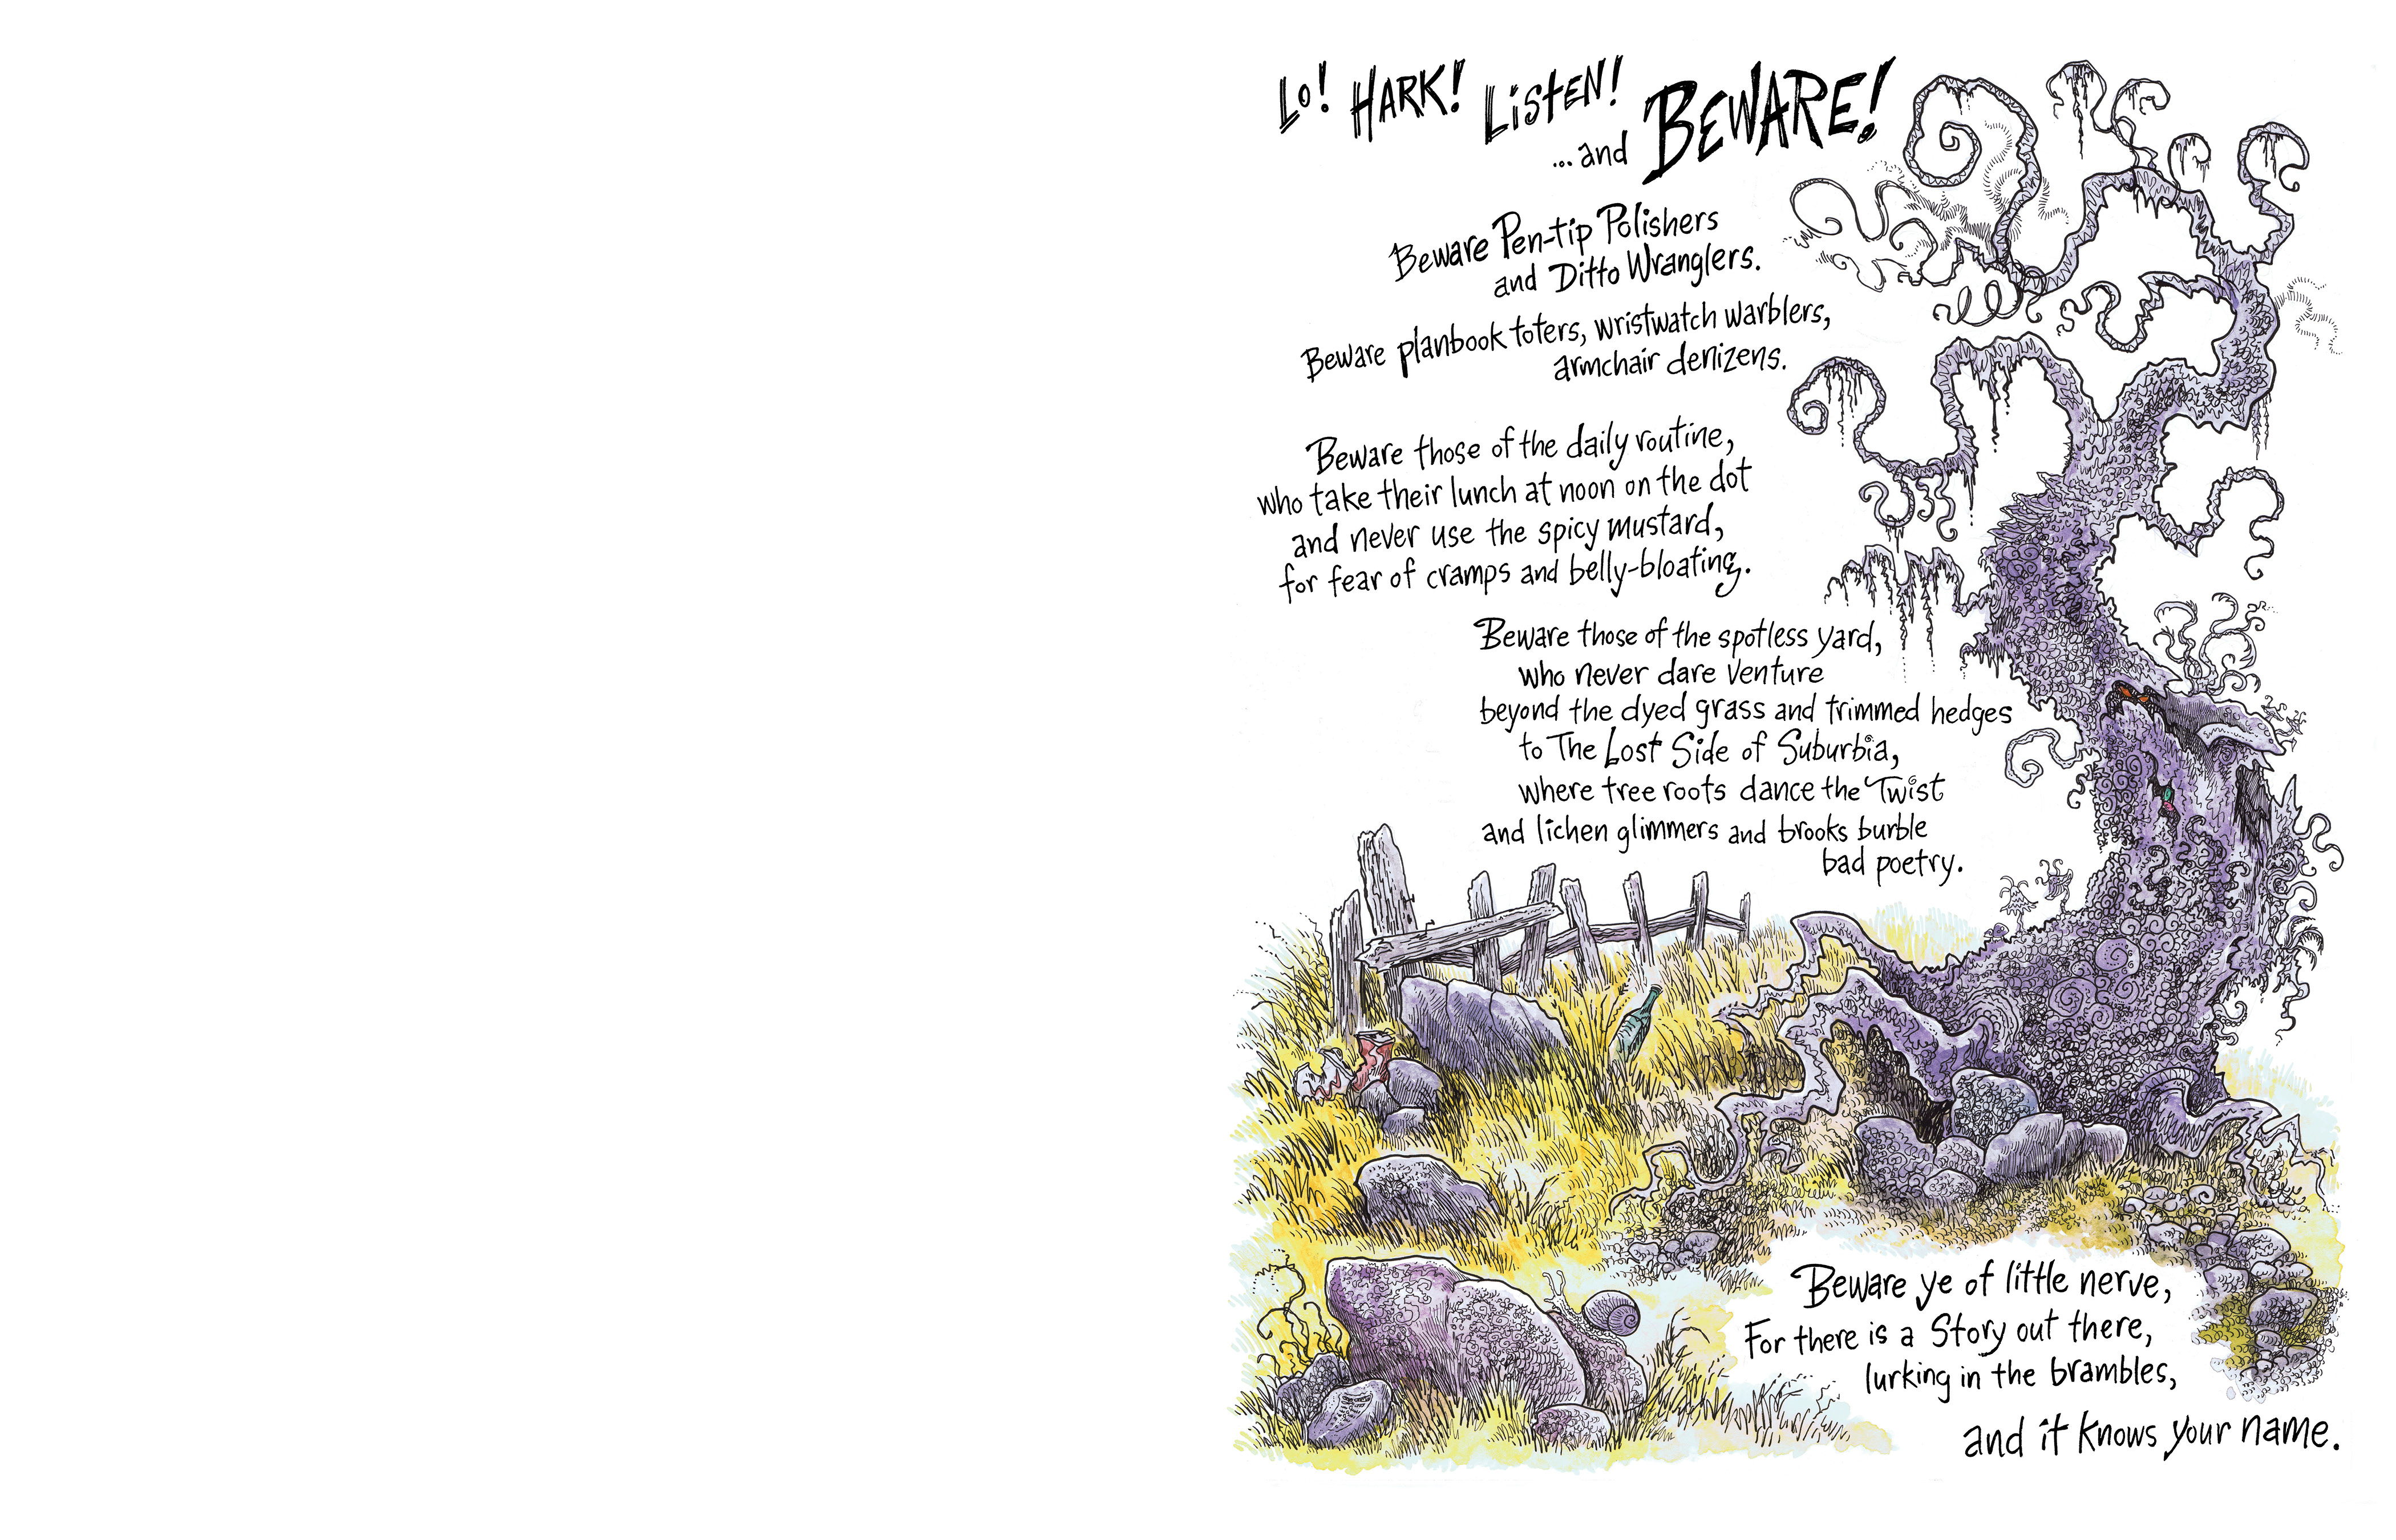 Lo! HARK! Listen!
...and BEWARE!
Beware Pen-tip Polishers
and Ditto Wranglers.
Beware planbook toters, wristwatch warblers,
armchair denizens.
Beware those of the daily routine,
who take their lunch at noon on the dot
and never use the spicy mustard,
for fear of cramps and belly-bloating.
Beware those of the spotless yard,
who never dare venture
beyond the dyed grass and trimmed hedges
to The Lost Side of Suburbia,
where tree roots dance the Twist
and lichen glimmers and brooks burble
bad poetry.
Beware ye of little nerve,
For there is a Story out there,
lurking in the brambles,
and it knows your name.